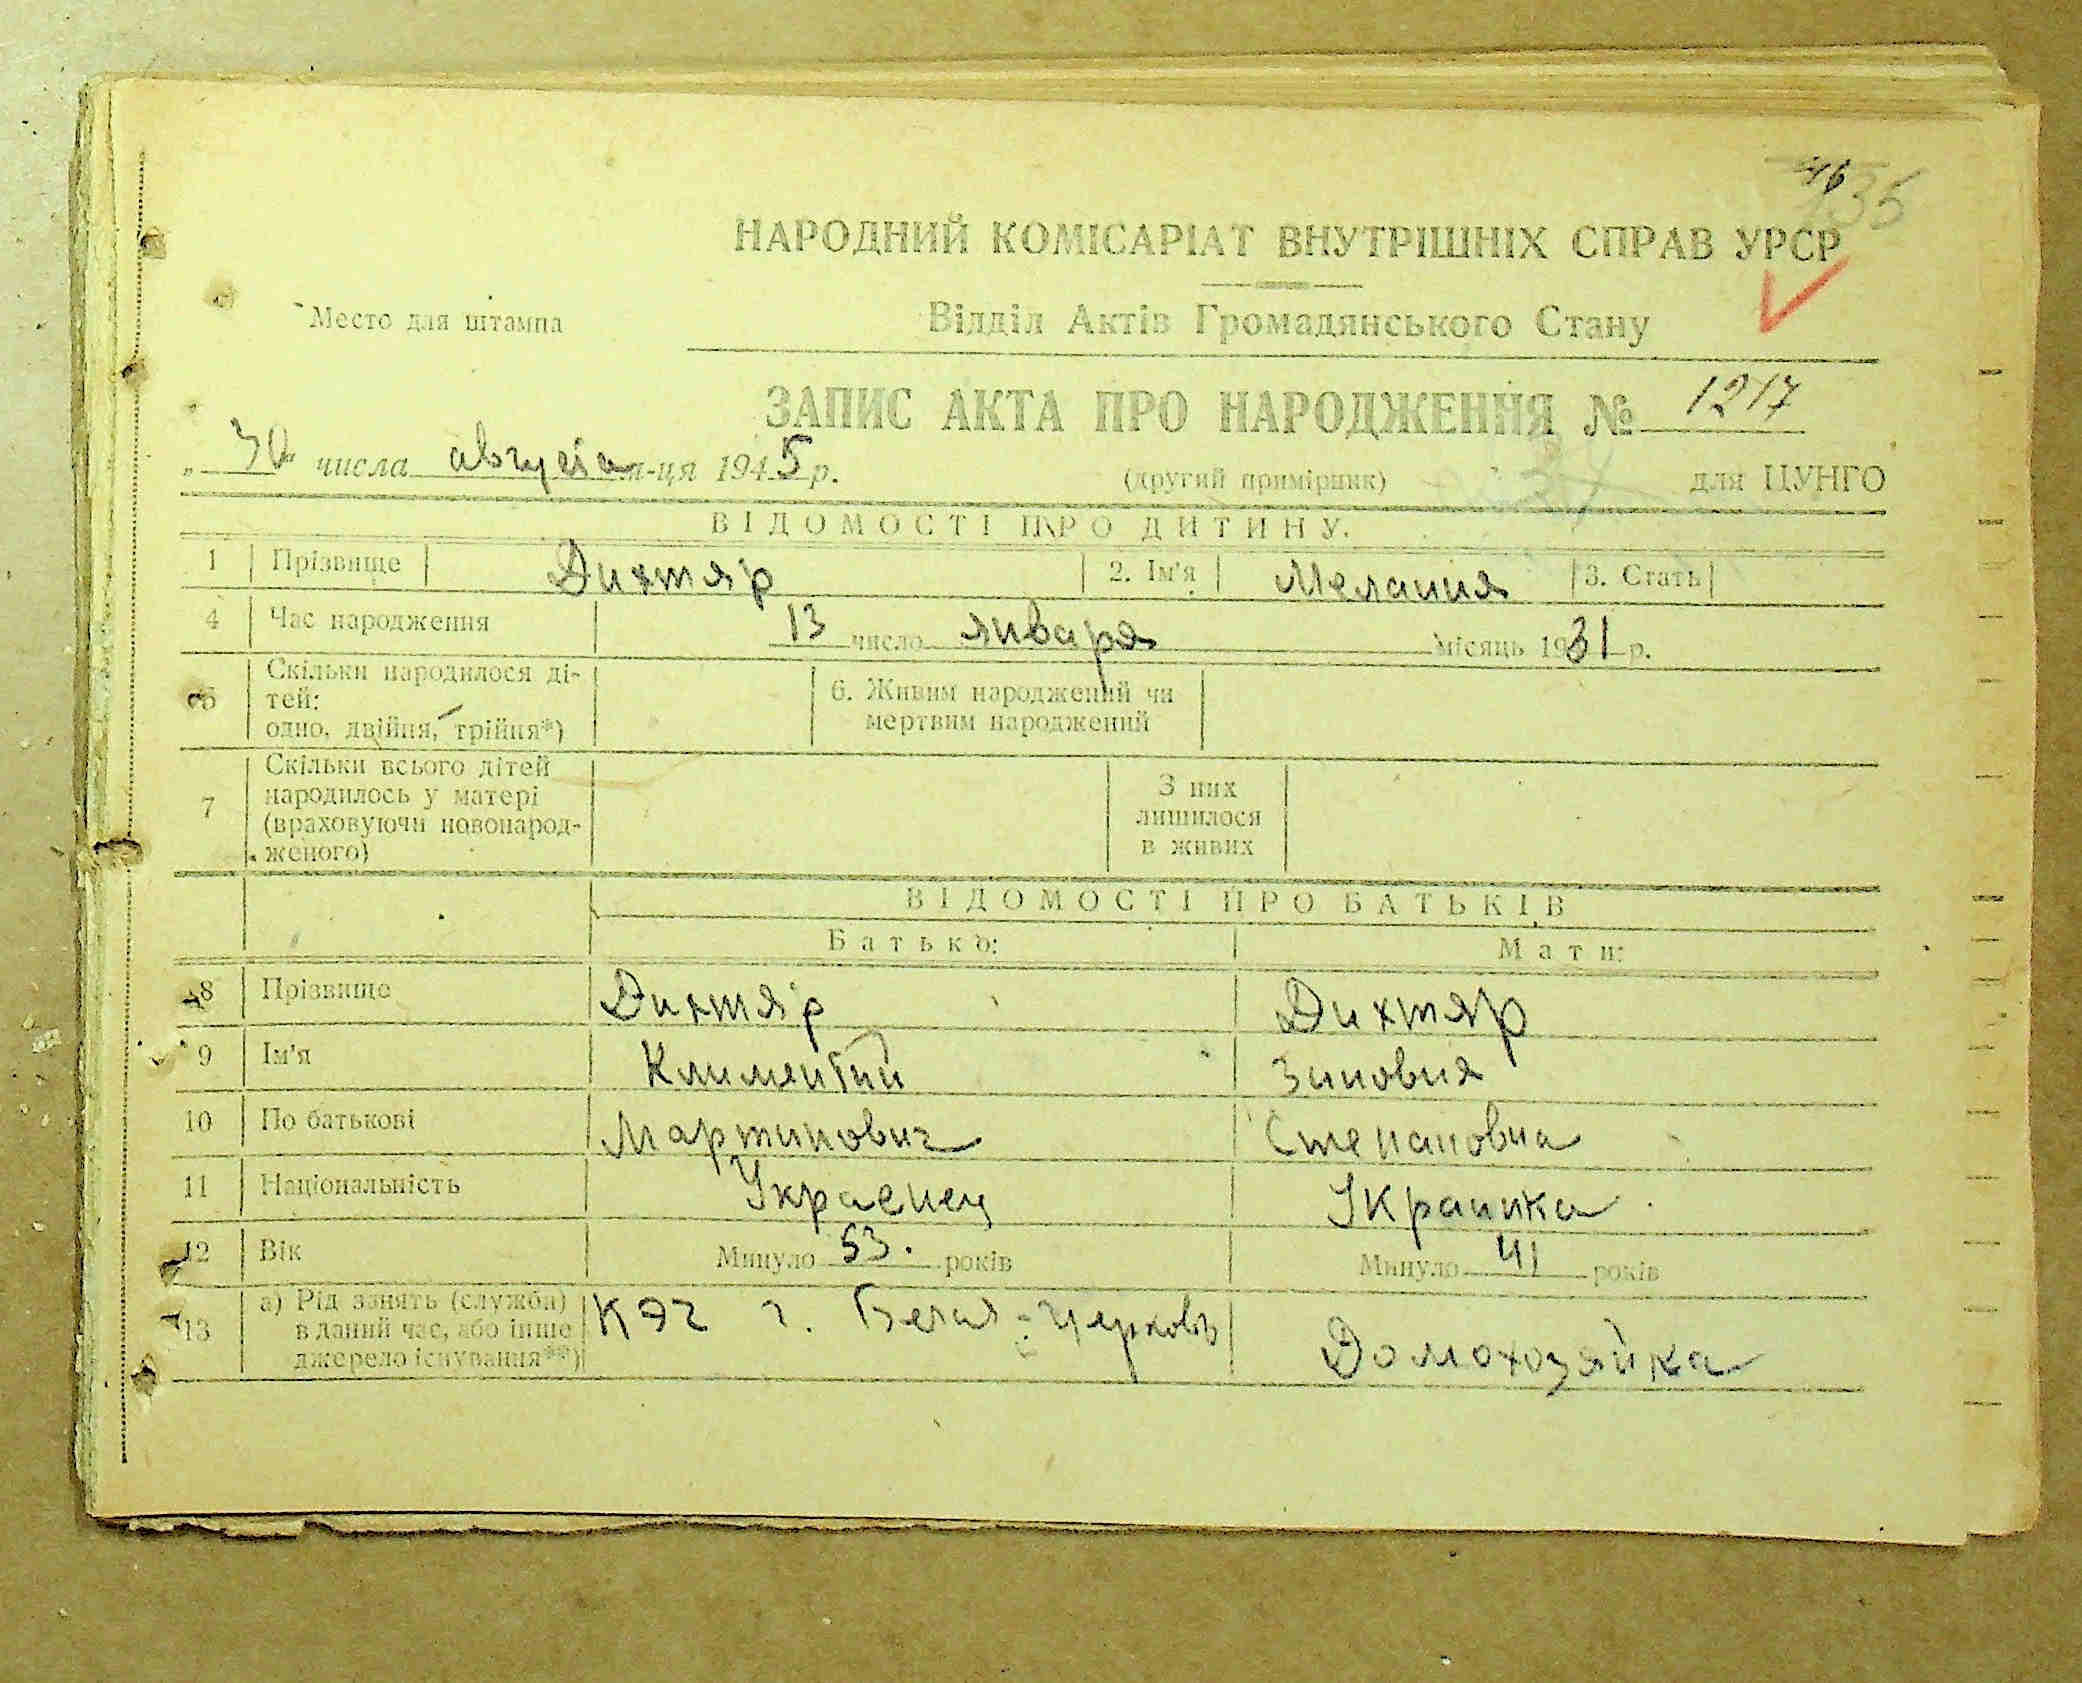 НАРОДНИЙ КОМІСАРІАТ ВНУТРІШНІХ СПРАВ УРСР
Место для штампа
Відділ Актів Громадянського Стану
ЗАПИС АКТА ПРО НАРОДЖЕННЯ № 1217
„30" числа августа м-ця 1945 р.
(другий примірник) для ЦУНГО
ВІДОМОСТІ ПРО ДИТИНУ.
1 Прізвище Дихтяр 2. Ім'я Мелания 3. Стать
4 Час народження 13 число января місяць 1931 р.
5 Скільки народилося ді-
тей:
одно, двійня, трійня*)
6. Живим народжений чи
мертвим народжений
7 Скільки всього дітей
народилось у матері
(враховуючи новонарод-
женого)
З них
лишилося
в живих
ВІДОМОСТІ ПРО БАТЬКІВ
Батько: Мати:
8 Прізвище Дихтяр Дихтяр
9 Ім'я Климентий Зиновия
10 По батькові Мартинович Степановна
11 Національність Украенец Украинка
12 Вік Минуло 53. років Минуло 41 років
13 а) Рід занять (служба)
в даний час, або інше
джерело існування**)
КЭЧ г. Белая-Церковь
Домохозяйка